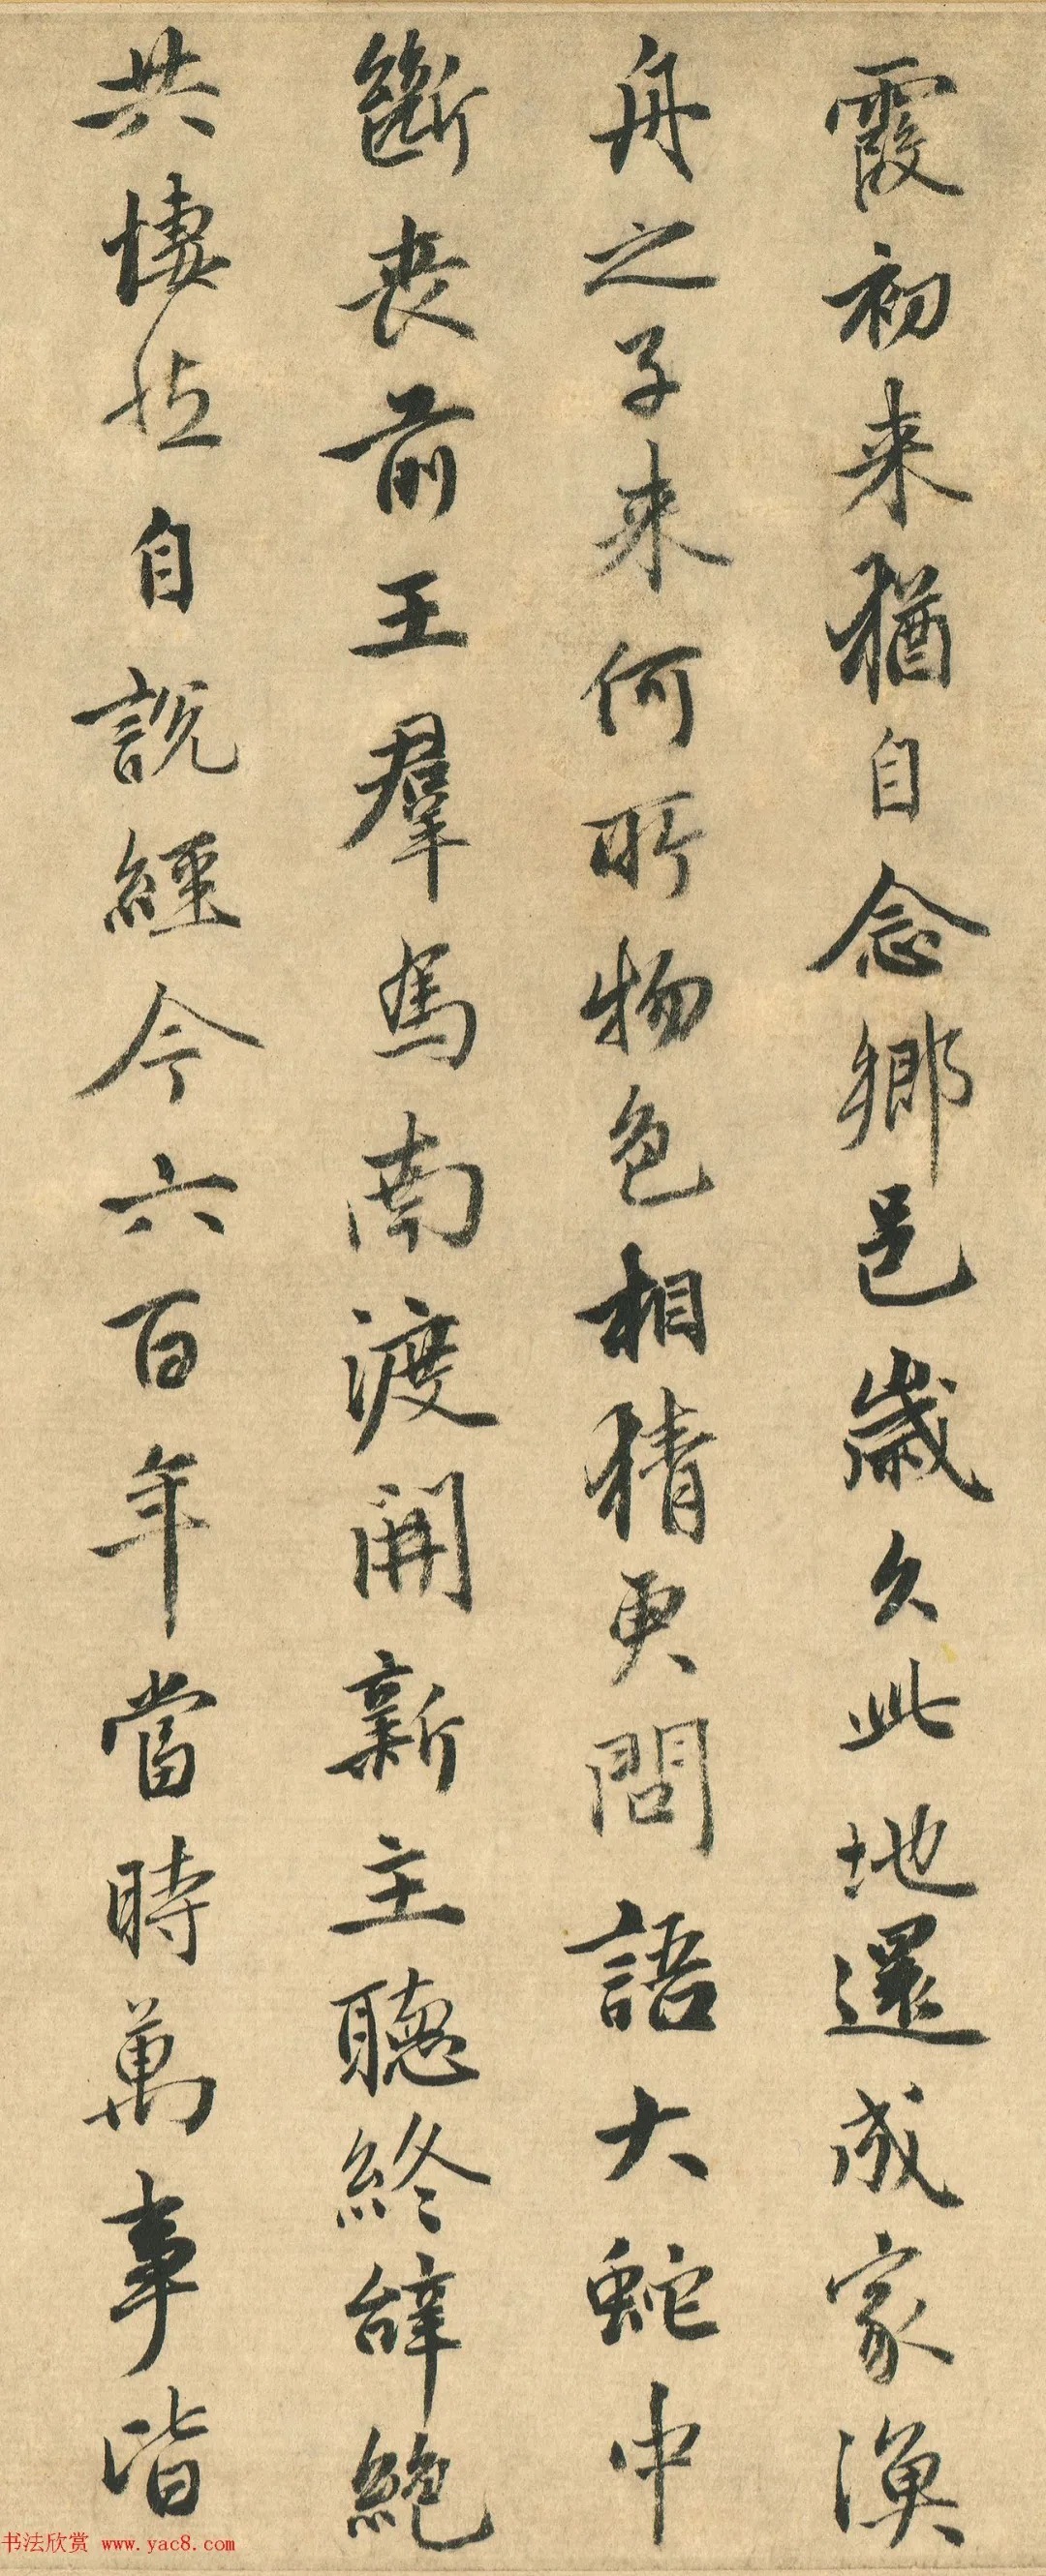 霞初来猶自念鄉邑歲久此地還成家漁
舟之子来何所物色相猜更問語大蛇中
斷丧前王羣馬南渡開新主聽終辭絕
共悽然自說經今六百年當時萬事皆
书法欣赏 www.yac8.com